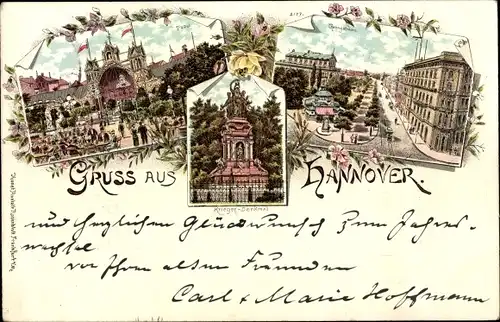 Tivoli
2127.
Georgstrasse
GRUSS AUS HANNOVER.
Krieger-Denkmal
und herzlichen Glückwunsch zum Jahres-
wechsel
von Ihren alten Freunden
Carl & Marie Hoffmann